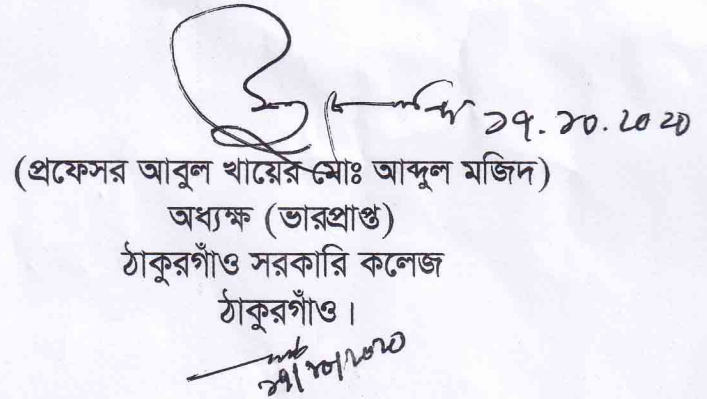 ২৭.১০.২০২০
(প্রফেসর আবুল খায়ের মোঃ আব্দুল মজিদ)
অধ্যক্ষ (ভারপ্রাপ্ত)
ঠাকুরগাঁও সরকারি কলেজ
ঠাকুরগাঁও।
২৭/১০/২০২০